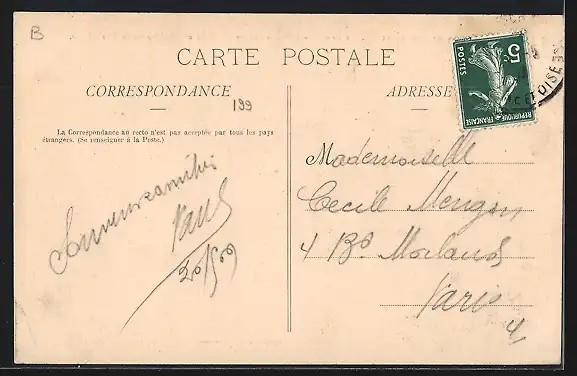 B
CARTE POSTALE
CORRESPONDANCE
199
ADRESSE
La Correspondance au recto n'est pas acceptée par tous les pays
étrangers. (Se renseigner à la Poste.)
5
POSTES
REPUBLIQUE FRANÇAISE
ET OISE
Mademoiselle
Cecile Mengin
4 Bd Morland
Paris
4
Souvenirs amitiés
Paul